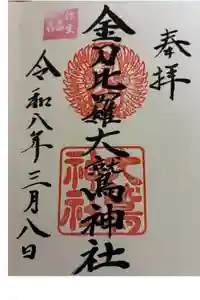 奉拝
金刀比羅大鷲神社
令和八年三月八日